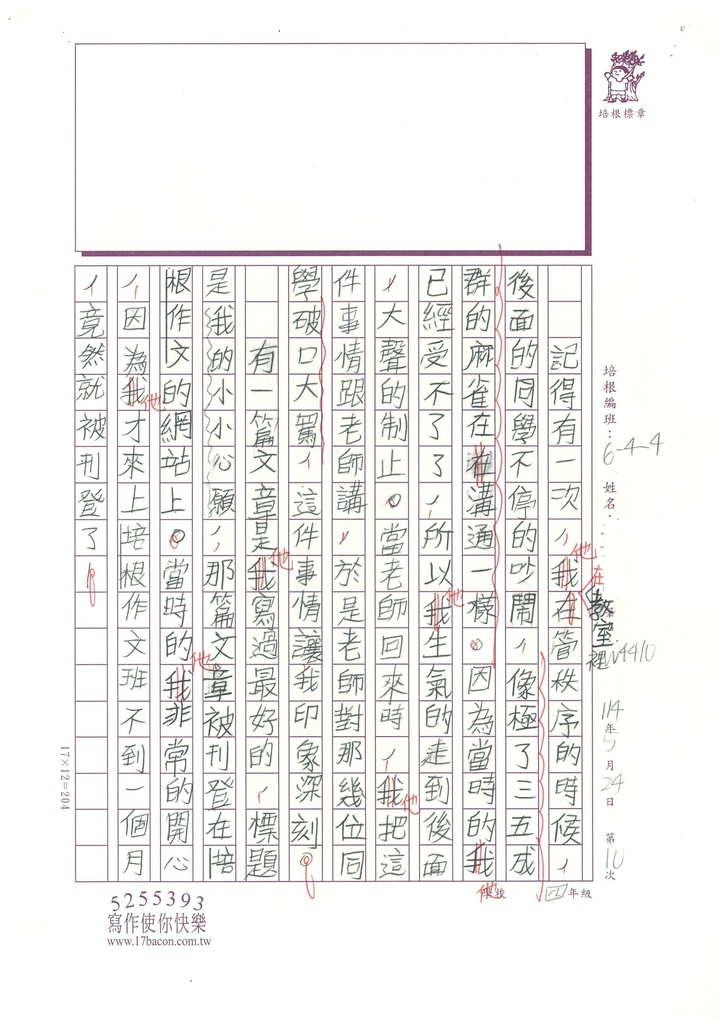 培根標章
培根編班：6-4-4 姓名：
W4410
114年5月24日 第10次
學校 四年級
記得有一次，我在管秩序的時候，
他
在教室裡
後面的同學不停的吵鬧，像極了三五成
群的麻雀在溝通一樣。因為當時的我
他
已經受不了了，所以我生氣的走到後面
他
，大聲的制止。當老師回來時，我把這
他
件事情跟老師講，於是老師對那幾位同
學破口大罵，這件事情讓我印象深刻。
有一篇文章是我寫過最好的，標題
他
是我的小小心願，那篇文章被刊登在培
根作文的網站上。當時的我非常的開心
他
，因為我才來上培根作文班不到一個月
他
，竟然就被刊登了！
17×12=204
5255393
寫作使你快樂
www.17bacon.com.tw